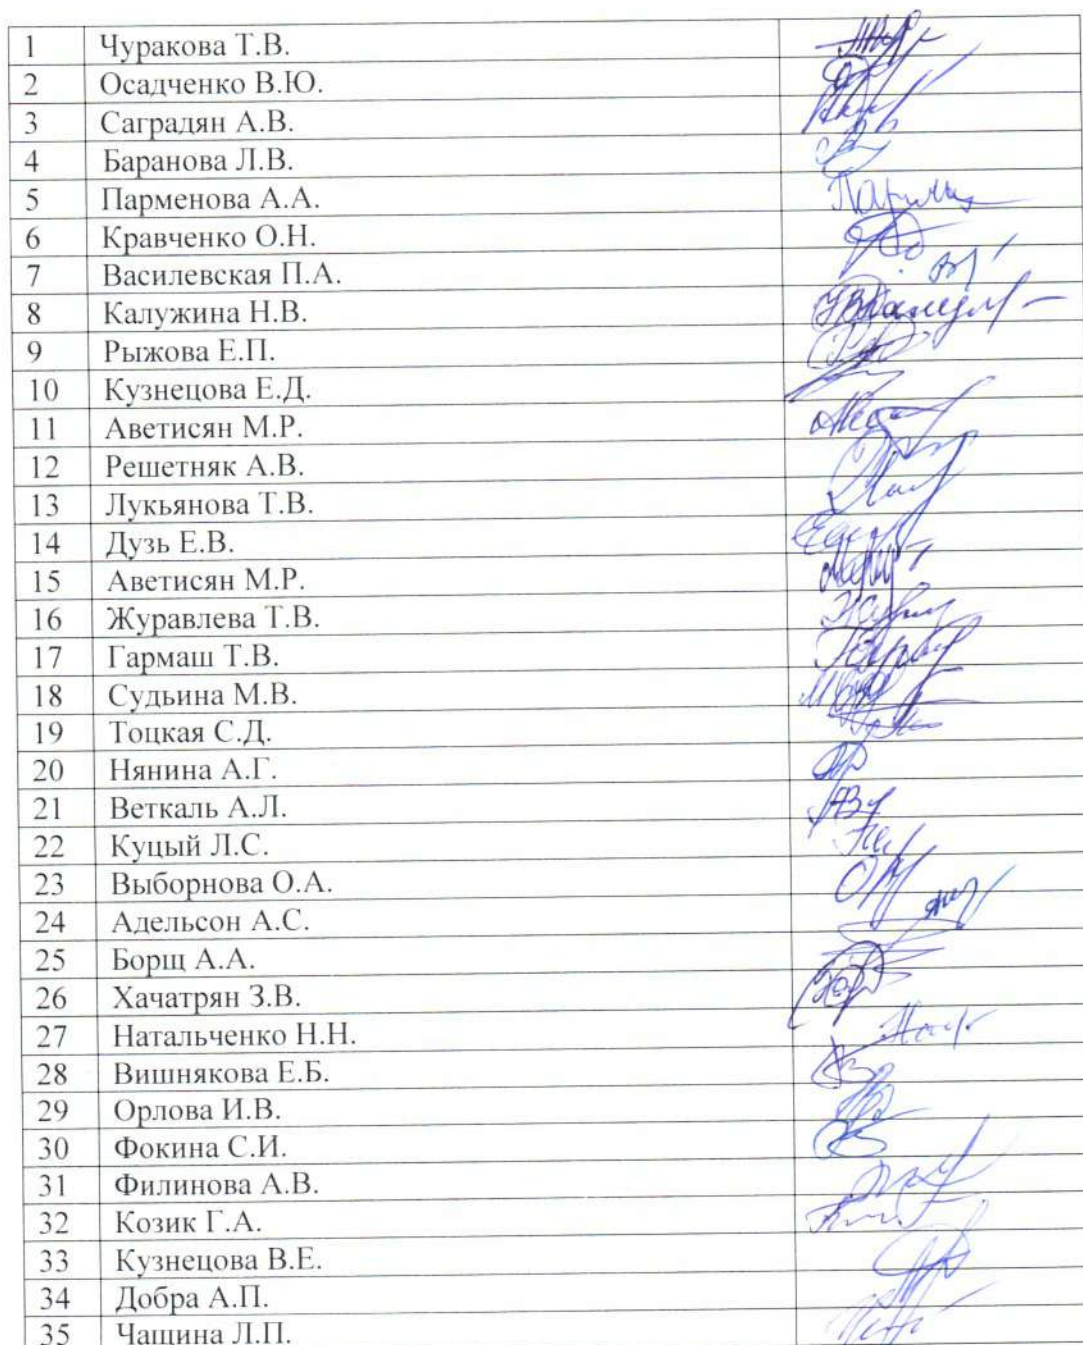 1 Чуракова Т.В.
2 Осадченко В.Ю.
3 Саградян А.В.
4 Баранова Л.В.
5 Парменова А.А.
6 Кравченко О.Н.
7 Василевская П.А.
8 Калужина Н.В.
9 Рыжова Е.П.
10 Кузнецова Е.Д.
11 Аветисян М.Р.
12 Решетняк А.В.
13 Лукьянова Т.В.
14 Дузь Е.В.
15 Аветисян М.Р.
16 Журавлева Т.В.
17 Гармаш Т.В.
18 Судьина М.В.
19 Тоцкая С.Д.
20 Нянина А.Г.
21 Веткаль А.Л.
22 Куцый Л.С.
23 Выборнова О.А.
24 Адельсон А.С.
25 Борщ А.А.
26 Хачатрян З.В.
27 Натальченко Н.Н.
28 Вишнякова Е.Б.
29 Орлова И.В.
30 Фокина С.И.
31 Филинова А.В.
32 Козик Г.А.
33 Кузнецова В.Е.
34 Добра А.П.
35 Чащина Л.П.